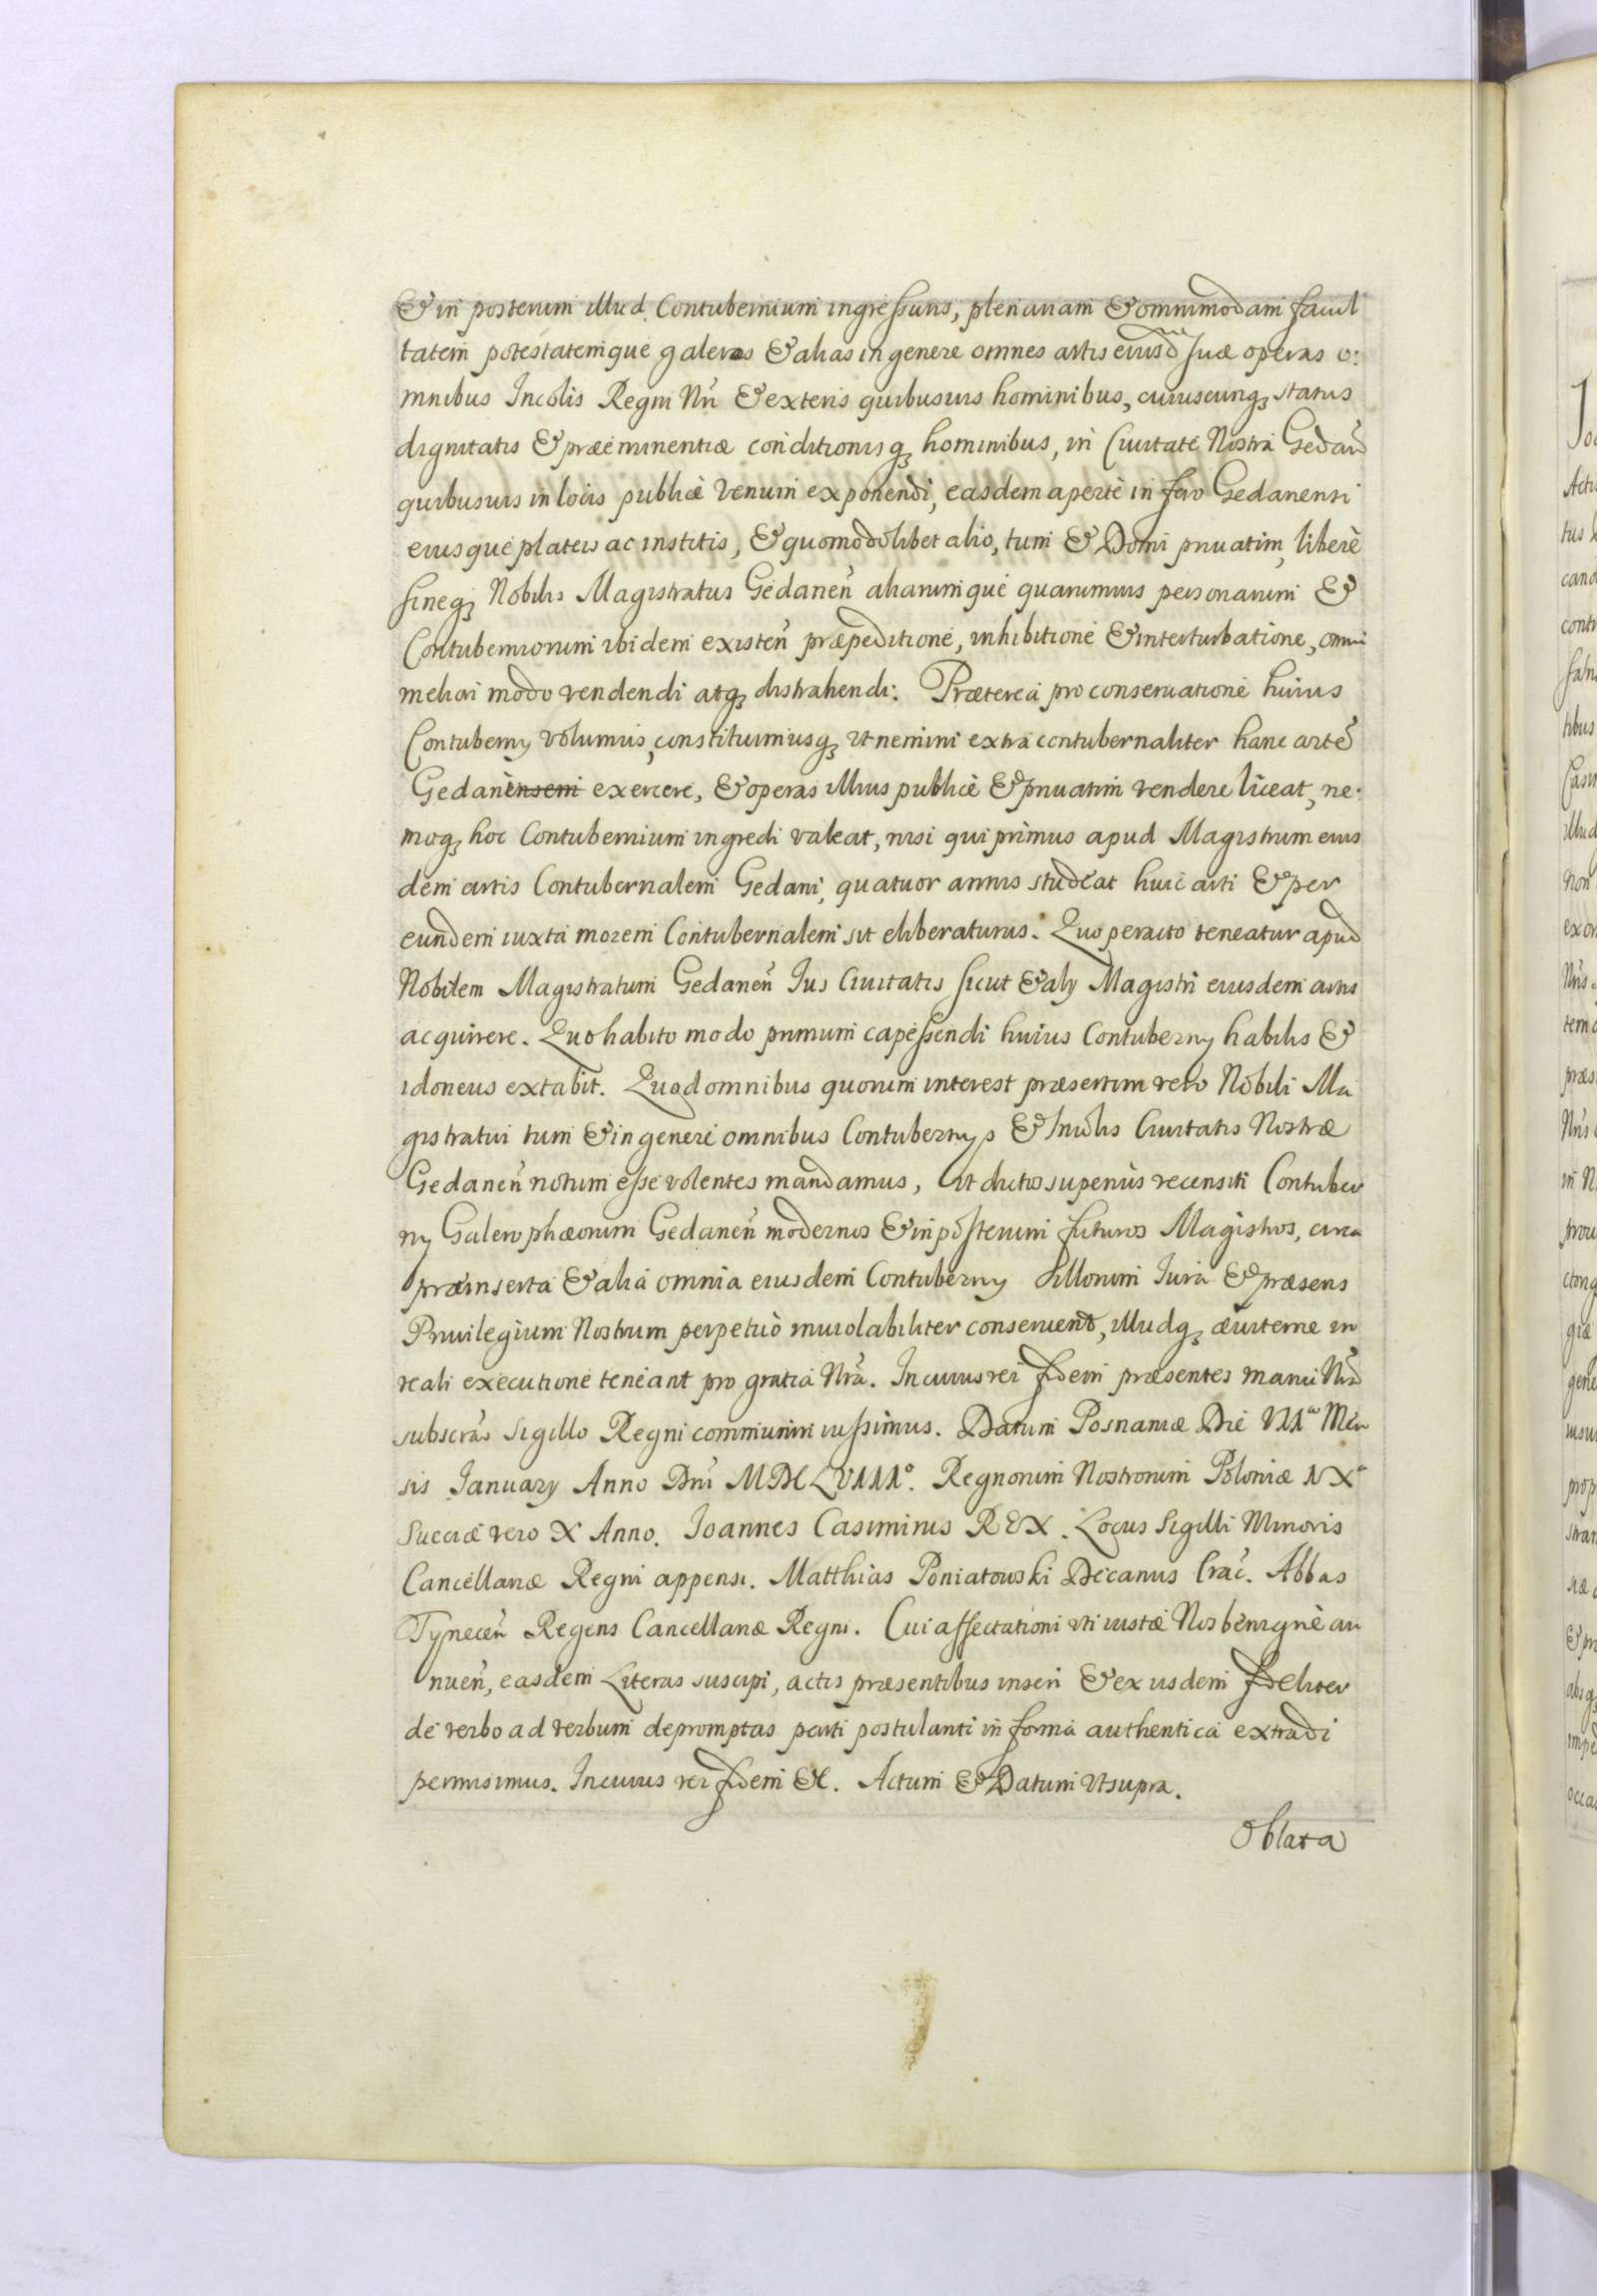 & in posterum illud Contubernium ingressuris, plenariam & omnimodam facul
tatem potestatemque galeros & alias in genere omnes artis eiusd suæ operas o:
mnibus Incolis Regni Nrĩ & exteris quibusuis hominibus, cuiuscunqꝫ status
dignitatis & præeminentiæ conditionisqꝫ hominibus, in Ciuitate Nostra Gedañ
quibusuis in locis publicè venum exponendi, easdem apertè in foro Gedanensi
eiusque plateis ac institis, & quomodolibet alio, tum & Domi priuatim, liberè
sineqꝫ Nobilis Magistratus Gedaneñ aliarumque quarumuis personarum &
Contuberniorum ibidem existeñ præpeditione, inhibitione & interturbatione, omni
meliori modo vendendi atqꝫ distrahendi: Præterea pro conseruatione huius
Contuberny volumus, constituimusqꝫ vt nemini extra contubernaliter hanc artẽ
Gedanensem exercere, & operas illius publicè & priuatim vendere liceat, ne:
moqꝫ hoc Contubernium ingredi valeat, nisi qui primus apud Magistrum eius
dem artis Contubernalem Gedani, quatuor annis studeat huic arti & per
eundem iuxta morem Contubernalem sit eliberaturus. Quo peracto teneatur apud
Nobilem Magistratum Gedaneñ Ius Ciuitatis sicut & aly Magistri eiusdem artis
acquirere. Quo habito modo primum capessendi huius Contuberny habilis &
idoneus extabit. Quod omnibus quorum interest præsertim vero Nobili Ma
gistratui tum & in genere omnibus Contubernys & Incolis Ciuitatis Nostræ
Gedaneñ notum esse volentes mandamus, vt dictos superiùs recensiti Contuber
ny Galerophæorum Gedaneñ modernos & in posterum futuros Magistros, circa
præinserta & alia omnia eiusdem Contuberny & illorum Iura & præsens
Priuilegium Nostrum perpetuò inuiolabiliter conseruent, illudqꝫ æuiterne in
reali executione teneant pro gratia Nrã. In cuius rei fidem præsentes manu Nrã
subscrãs Sigillo Regni communiri iussimus. Datum Posnaniæ Die VII.a Men
sis January Anno Dnĩ MDCLVIII.o Regnorum Nostrorum Poloniæ IX.o
Sueciæ vero X Anno. Ioannes Casimirus REX. Locus Sigilli Minoris
Cancellariæ Regni appensi. Matthias Poniatowski Decanus Crac̃. Abbas
Tyneceñ Regens Cancellariæ Regni. Cui affectationi vti iustæ Nos benignè an
nueñ, easdem Literas suscipi, actis præsentibus inseri & ex iisdem fideliter
de verbo ad verbum depromptas parti postulanti in forma authentica extradi
permisimus. In cuius rei fidem &c. Actum & Datum vt supra.
Oblata